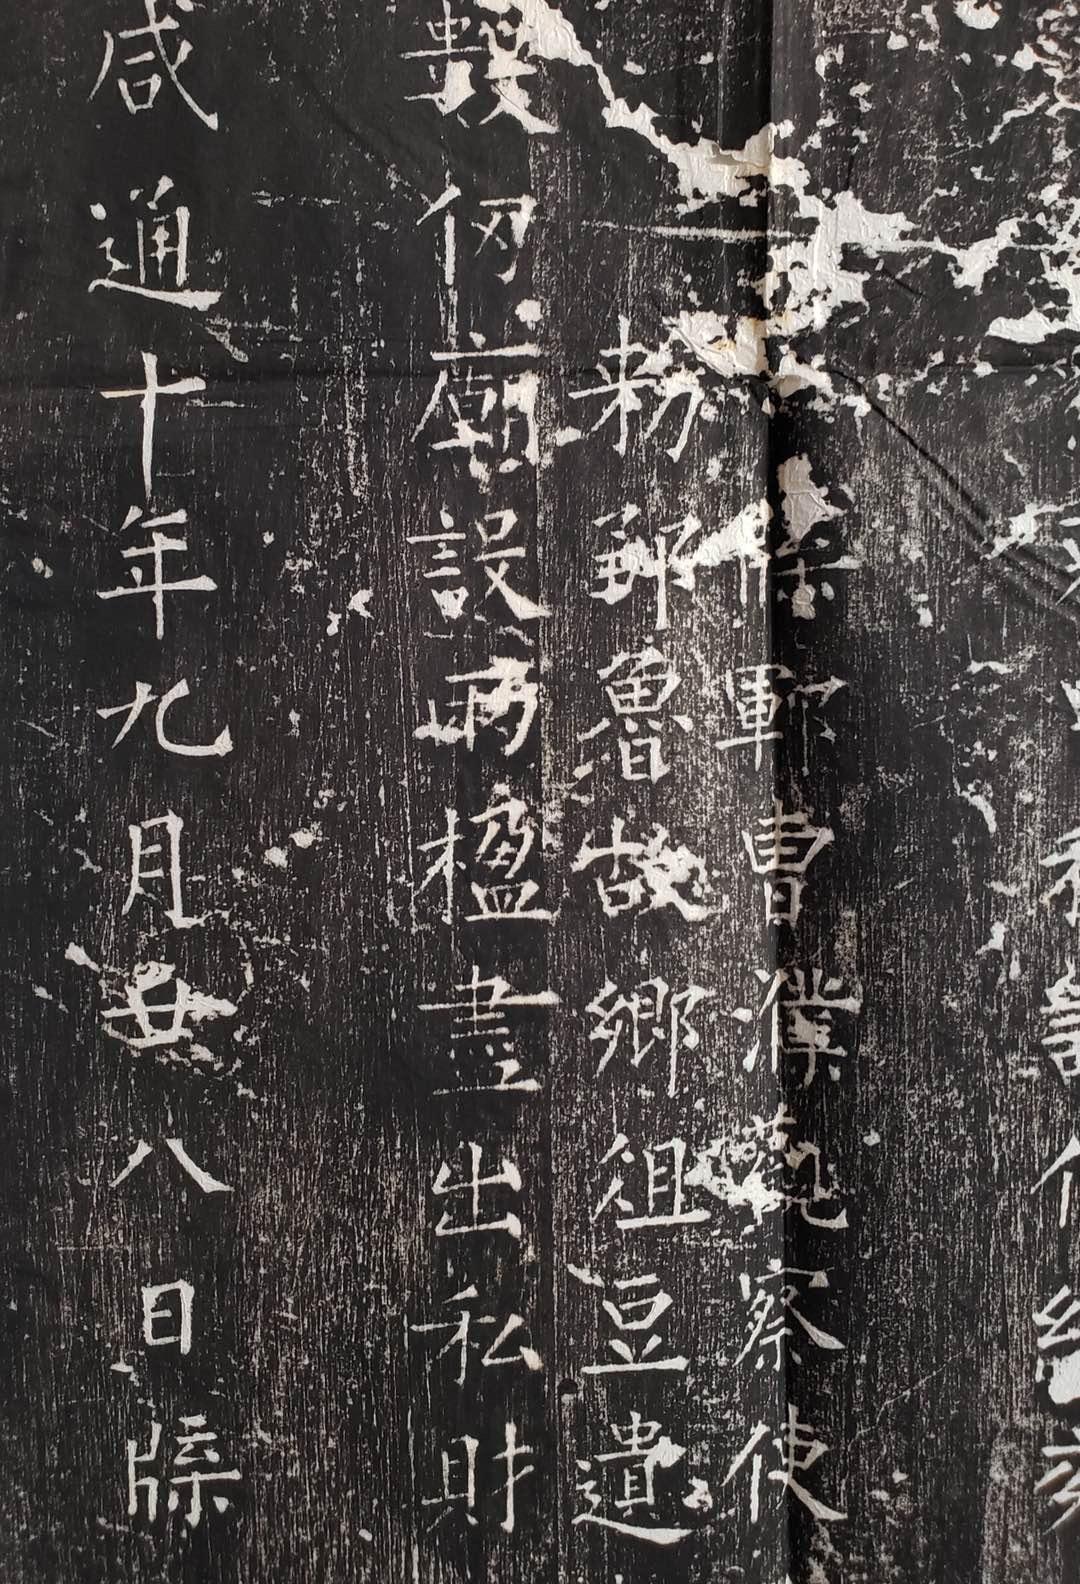 鄆曹濮觀察使
勑鄒魯故鄉俎豆遺
數仞廟設兩楹盡出私財
咸通十年九月廿八日牒